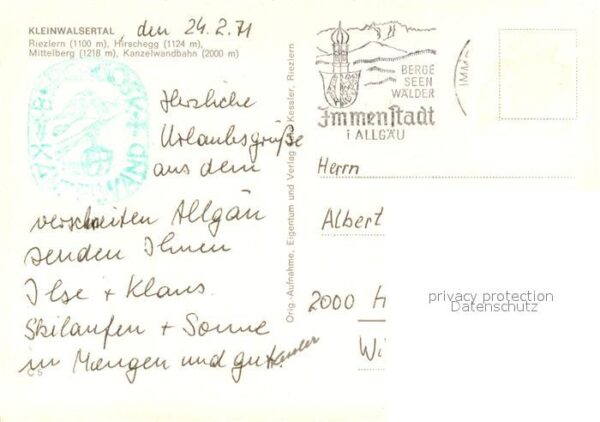 KLEINWALSERTAL, den 24.2.71
Riezlern (1100 m), Hirschegg (1124 m),
Mittelberg (1218 m), Kanzelwandbahn (2000 m)
Herzliche
Urlaubsgrüße
aus dem
verschneiten Allgäu
senden Ihnen
Ilse + Klaus.
Skilaufen + Sonne
in Mengen und gut.
Kessler
CS
Orig.-Aufnahme, Eigentum und Verlag Kessler, Riezlern
BERGE
SEEN
WÄLDER
Immenstadt
i ALLGÄU
IMM
Herrn
Albert
2000 H
Wi
privacy protection
Datenschutz